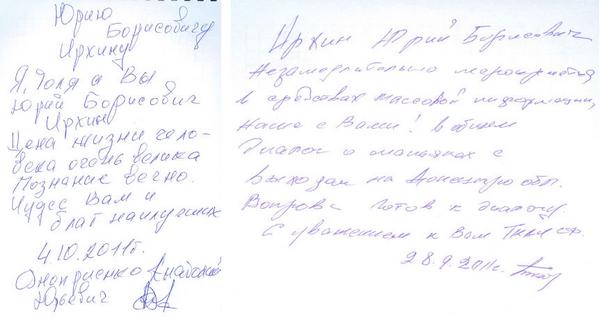 Юрию
Борисовичу
Ирхину
Я, Толя а Вы
Юрий Борисович
Ирхин
Цена жизни чело-
века очень велика
Познание вечно.
Чудес Вам и
благ наилучших
4.10.2011г.
Оноприенко Анатолий
Юрьевич
Ирхин Юрий Борисович
Незамедлительно мероприятия
в средствах массовой информации,
Наше с Вами! в общем
Диалог о маньяках с
выходом на Донецкую обл.
Вопрос готов к диалогу.
С уважением к Вам Ткач СФ.
28.9.2011г.